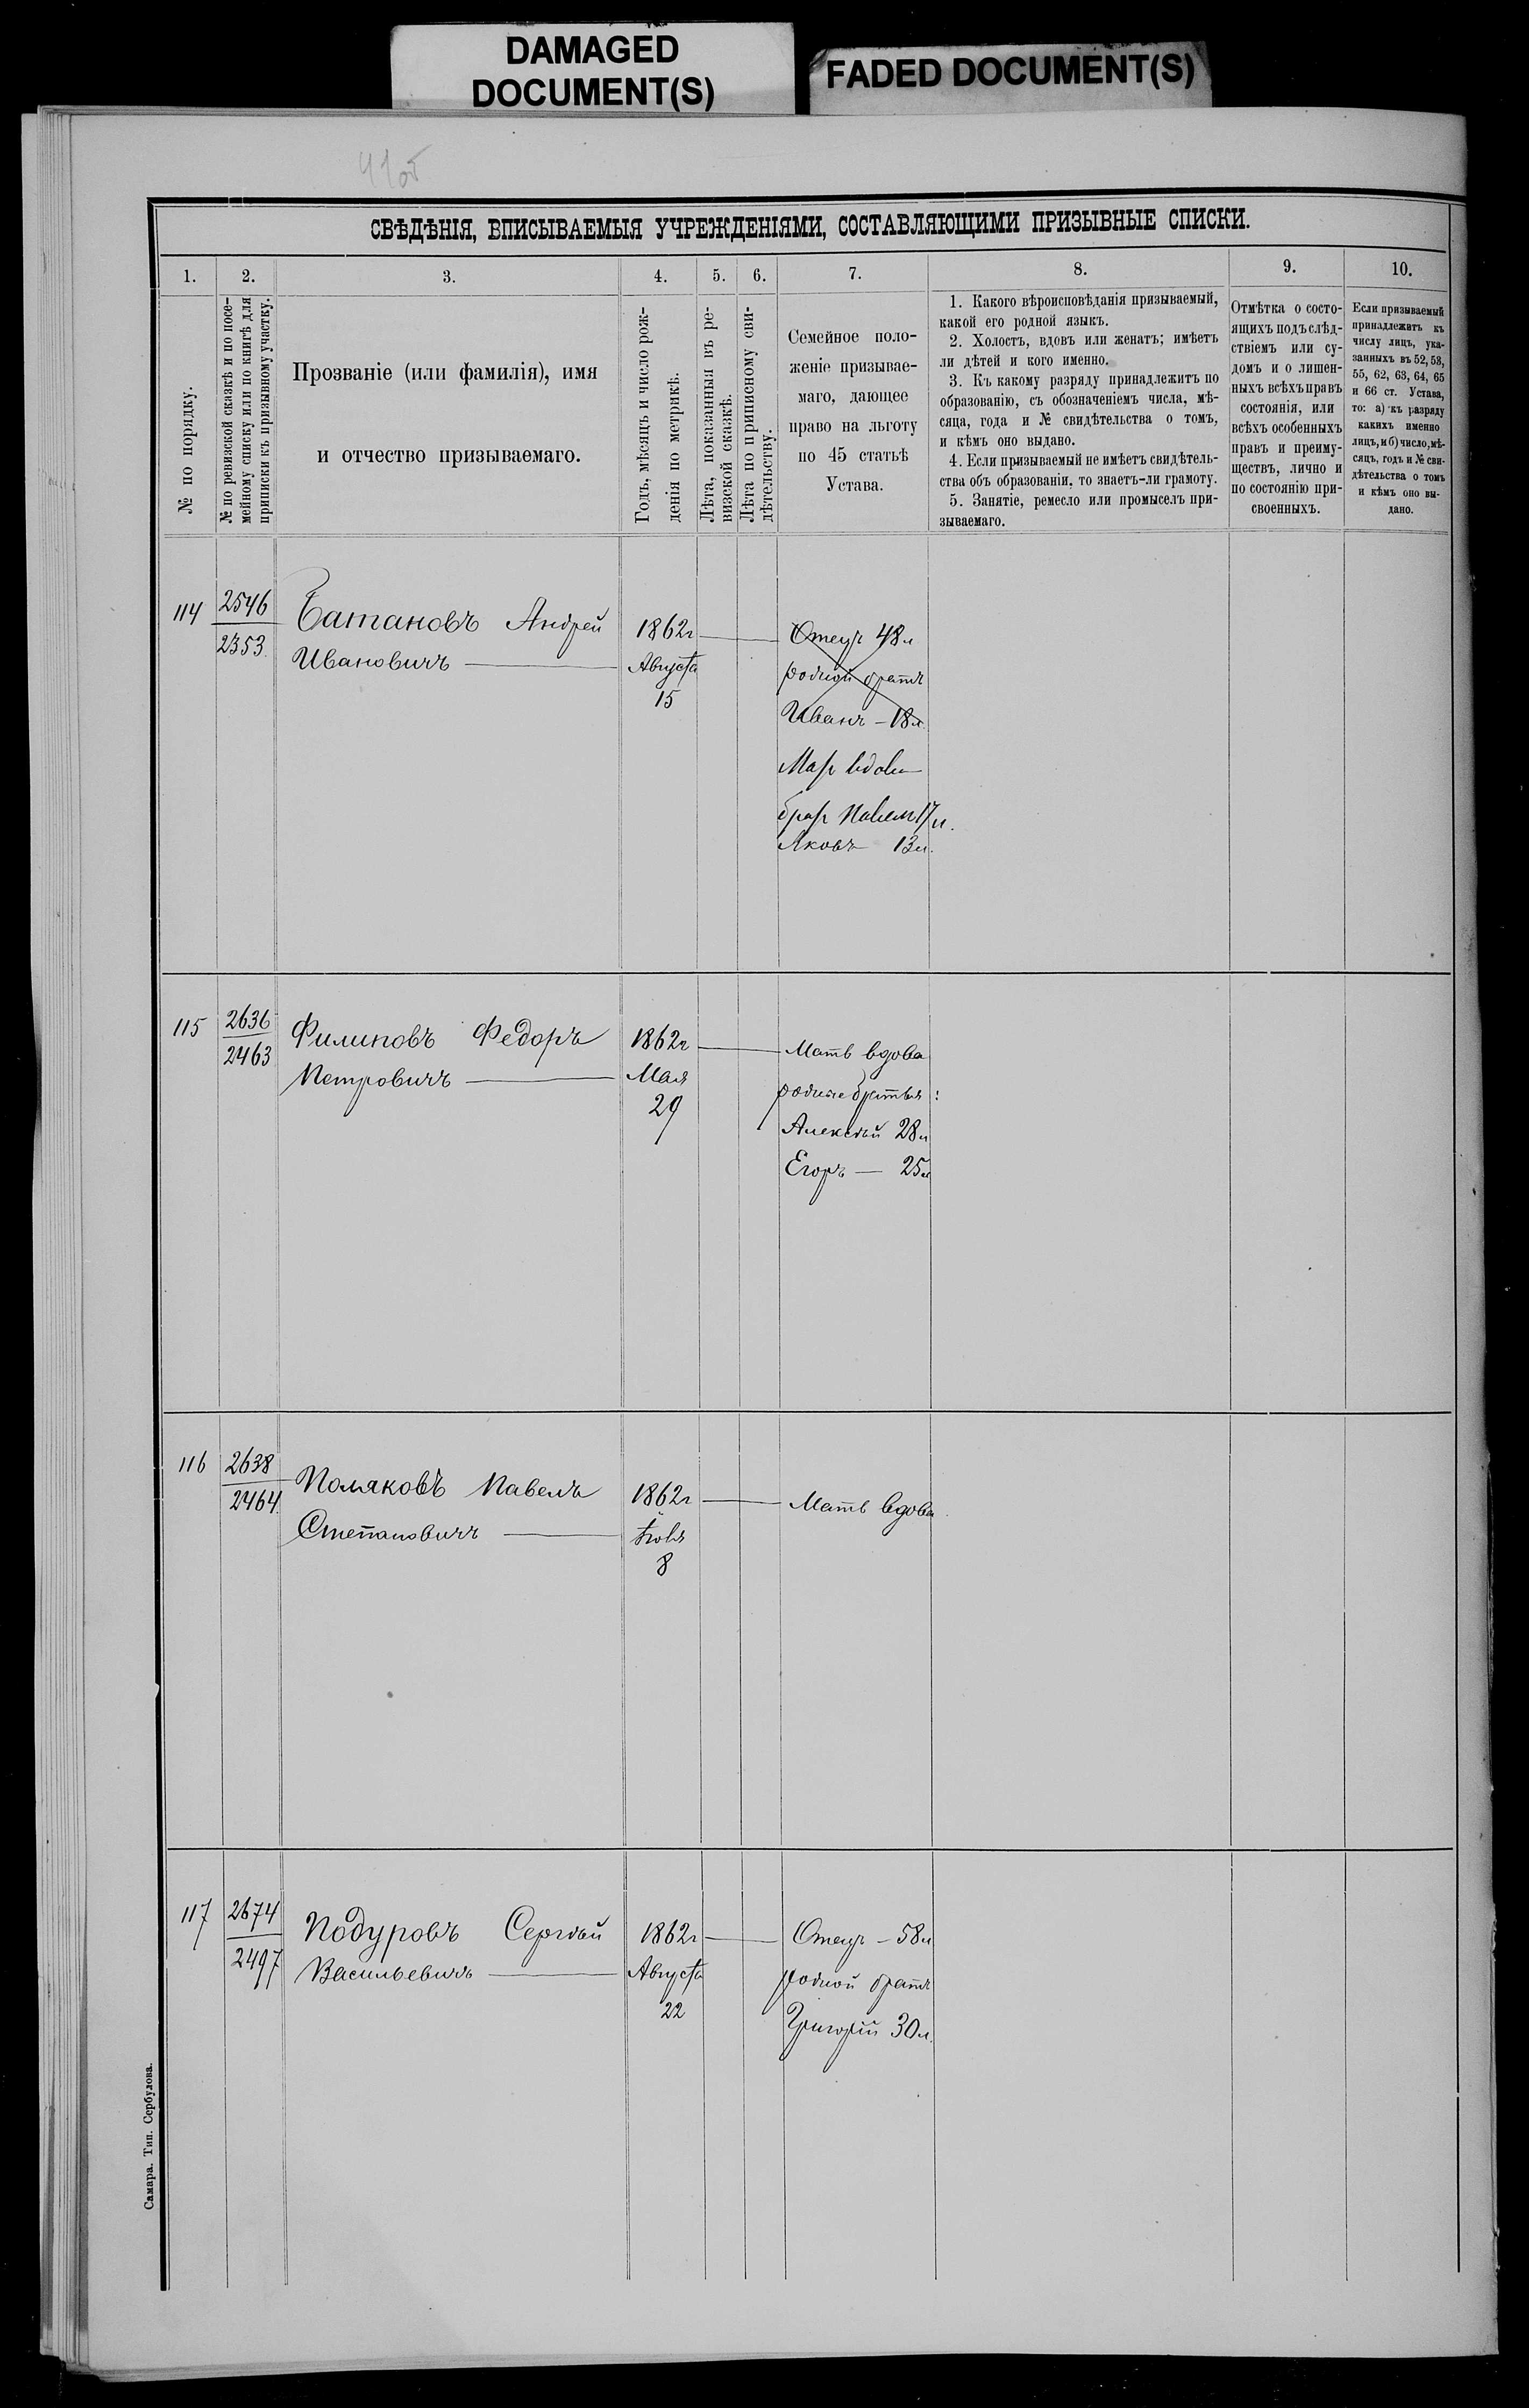 DAMAGED
DOCUMENT(S)
FADED DOCUMENT(S)
41об
СВѢДѢНІЯ, ВПИСЫВАЕМЫЯ УЧРЕЖДЕНІЯМИ, СОСТАВЛЯЮЩИМИ ПРИЗЫВНЫЕ СПИСКИ.
1.
2.
3.
4.
5.
6.
7.
8.
9.
10.
№ по порядку.
№ по ревизской сказкѣ и по посе-
мейному списку или по книгѣ для
приписки къ призывному участку.
Прозваніе (или фамилія), имя
и отчество призываемаго.
Годъ, мѣсяцъ и число рож-
денія по метрикѣ.
Лѣта, показанныя въ ре-
визской сказкѣ.
Лѣта по приписному сви-
дѣтельству.
Семейное поло-
женіе призывае-
маго, дающее
право на льготу
по 45 статьѣ
Устава.
1. Какого вѣроисповѣданія призываемый,
какой его родной языкъ.
2. Холостъ, вдовъ или женатъ; имѣетъ
ли дѣтей и кого именно.
3. Къ какому разряду принадлежитъ по
образованію, съ обозначеніемъ числа, мѣ-
сяца, года и № свидѣтельства о томъ,
и кѣмъ оно выдано.
4. Если призываемый не имѣетъ свидѣтель-
ства объ образованіи, то знаетъ-ли грамоту.
5. Занятіе, ремесло или промыселъ при-
зываемаго.
Отмѣтка о состо-
ящихъ подъ слѣд-
ствіемъ или су-
домъ и о лишен-
ныхъ всѣхъ правъ
состоянія, или
всѣхъ особенныхъ
правъ и преиму-
ществъ, лично и
по состоянію при-
своенныхъ.
Если призываемый
принадлежитъ къ
числу лицъ, ука-
занныхъ въ 52, 53,
55, 62, 63, 64, 65
и 66 ст. Устава,
то: а) къ разряду
какихъ именно
лицъ, и б) число, мѣ-
сяцъ, годъ и № сви-
дѣтельства о томъ
и кѣмъ оно вы-
дано.
114
2546
2353.
Батановъ Андрей
Ивановичъ
1862г
Августа
15
Отецъ 48л
родной братъ
Иванъ — 18л.
Мать вдова
брат Павелъ 17л.
Яковъ 13л.
115
2636
2463
Филиповъ Федоръ
Петровичъ
1862г
Мая
29
Мать вдова
родные братья:
Алексѣй 28л
Егоръ — 25л
116
2638
2464.
Поляковъ Павелъ
Степановичъ
1862г
Іюля
8
Мать вдова
117
2674
2497
Подуровъ Сергѣй
Васильевичъ
1862г
Августа
22
Отецъ — 58л
родной братъ
Григорій 30л.
Самара. Тип. Сербулова.